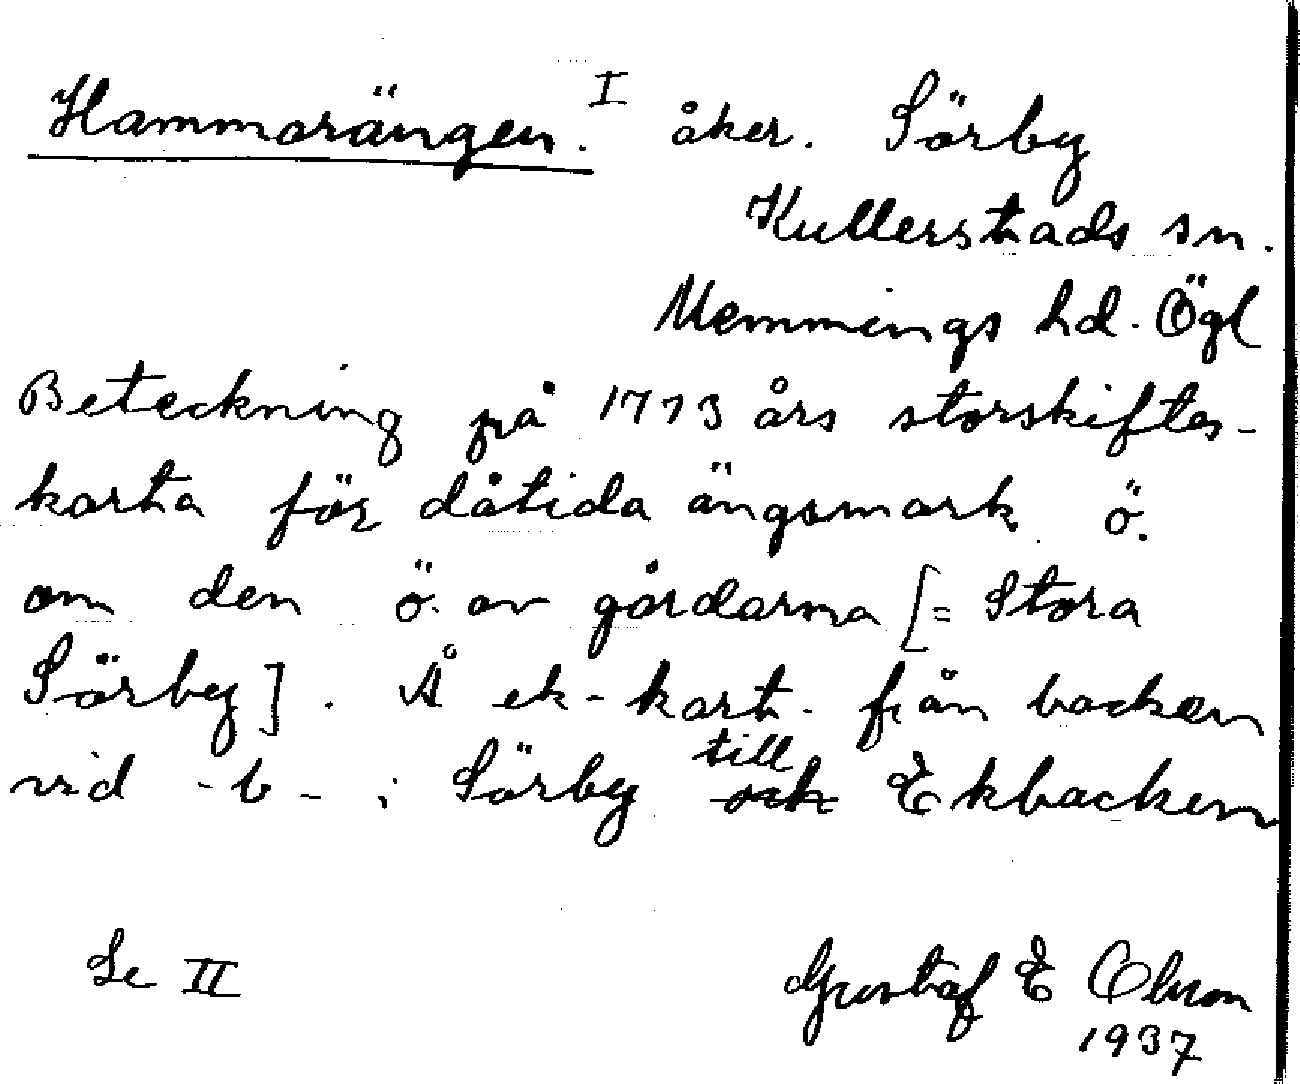 Hammarängen. I åker. Sörby
Kullerstads sn.
Memmings hd. Ögl
Beteckning på 1773 års storskiftes-
karta för dåtida ängsmark ö.
om den ö. av gårdarna [= Stora
Sörby]. Å ek-kart. från backen
vid -b- i Sörby till Ekbacken
Se II
Gustaf E Olson
1937